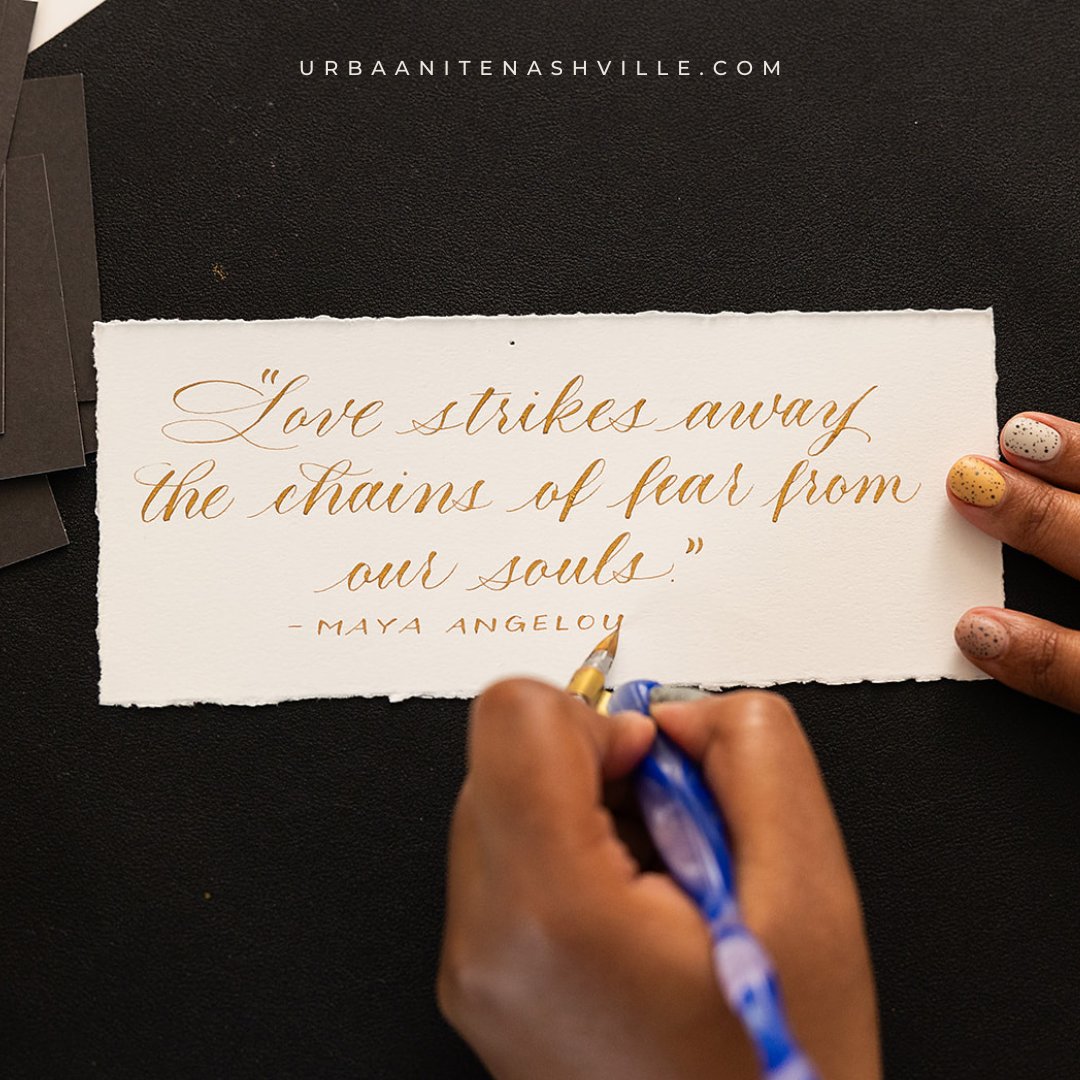 URBAANITENASHVILLE.COM
"Love strikes away
the chains of fear from
our souls."
- MAYA ANGELOU